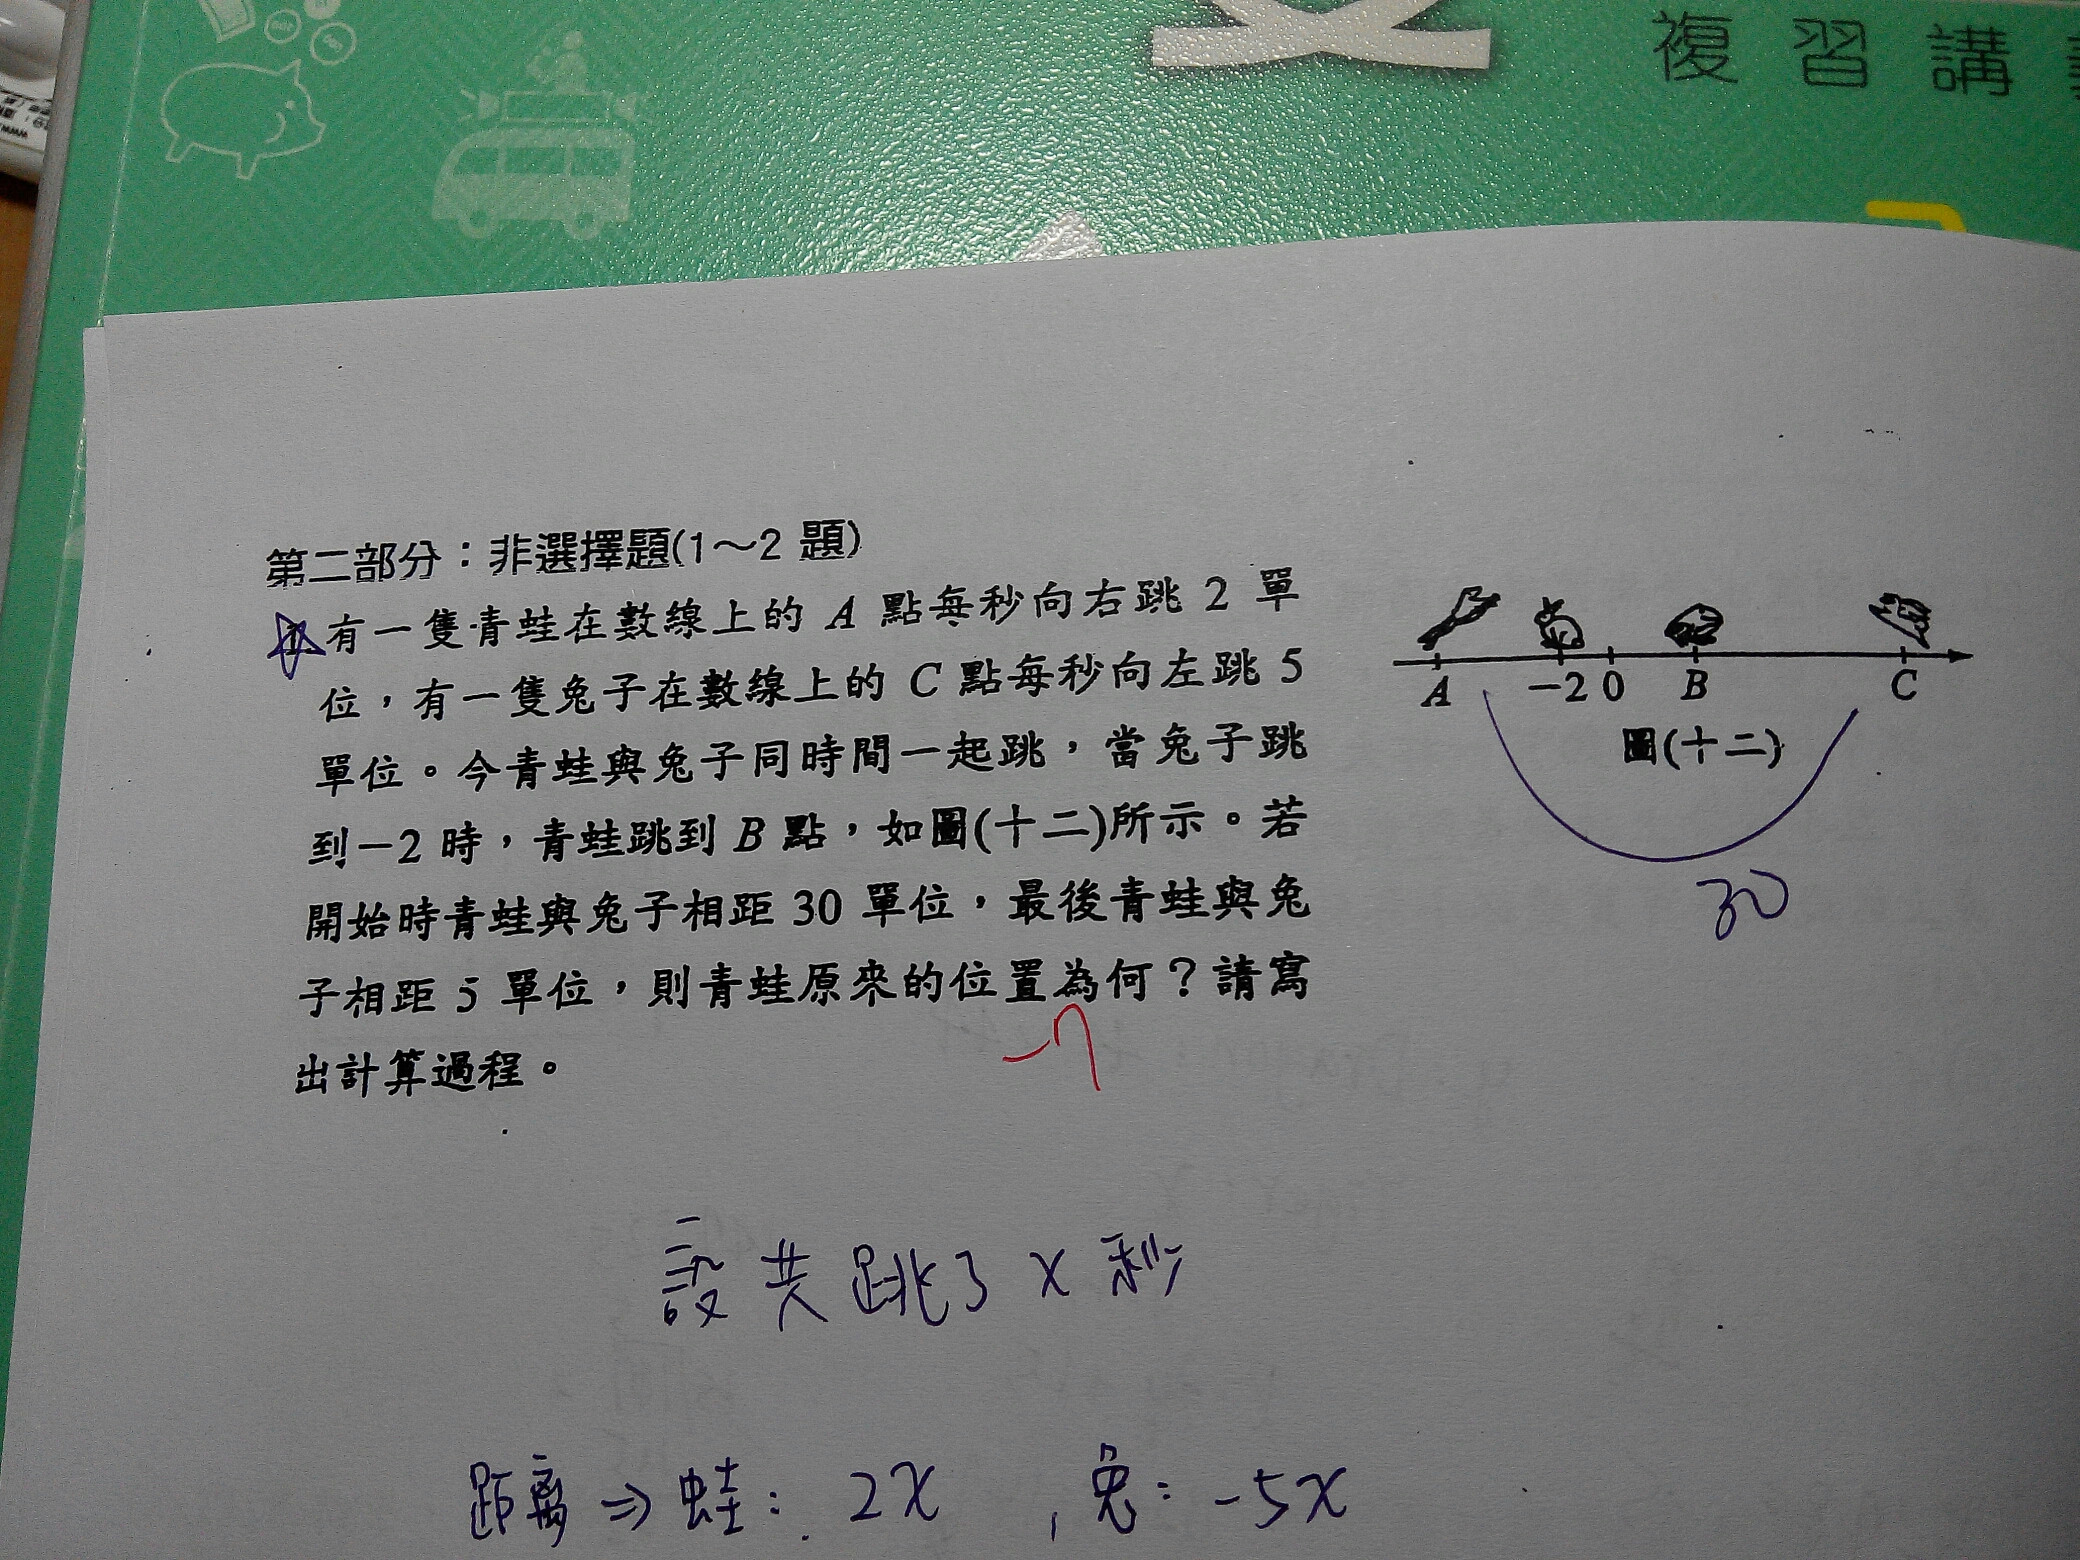 複習講
第二部分：非選擇題(1～2 題)
1. 有一隻青蛙在數線上的 A 點每秒向右跳 2 單
位，有一隻兔子在數線上的 C 點每秒向左跳 5
單位。今青蛙與兔子同時間一起跳，當兔子跳
到－2 時，青蛙跳到 B 點，如圖(十二)所示。若
開始時青蛙與兔子相距 30 單位，最後青蛙與兔
子相距 5 單位，則青蛙原來的位置為何？請寫
出計算過程。
A －2 0 B C
圖(十二)
30
－7
設共跳了 x 秒
距離 ⇒ 蛙： 2x ，兔： -5x